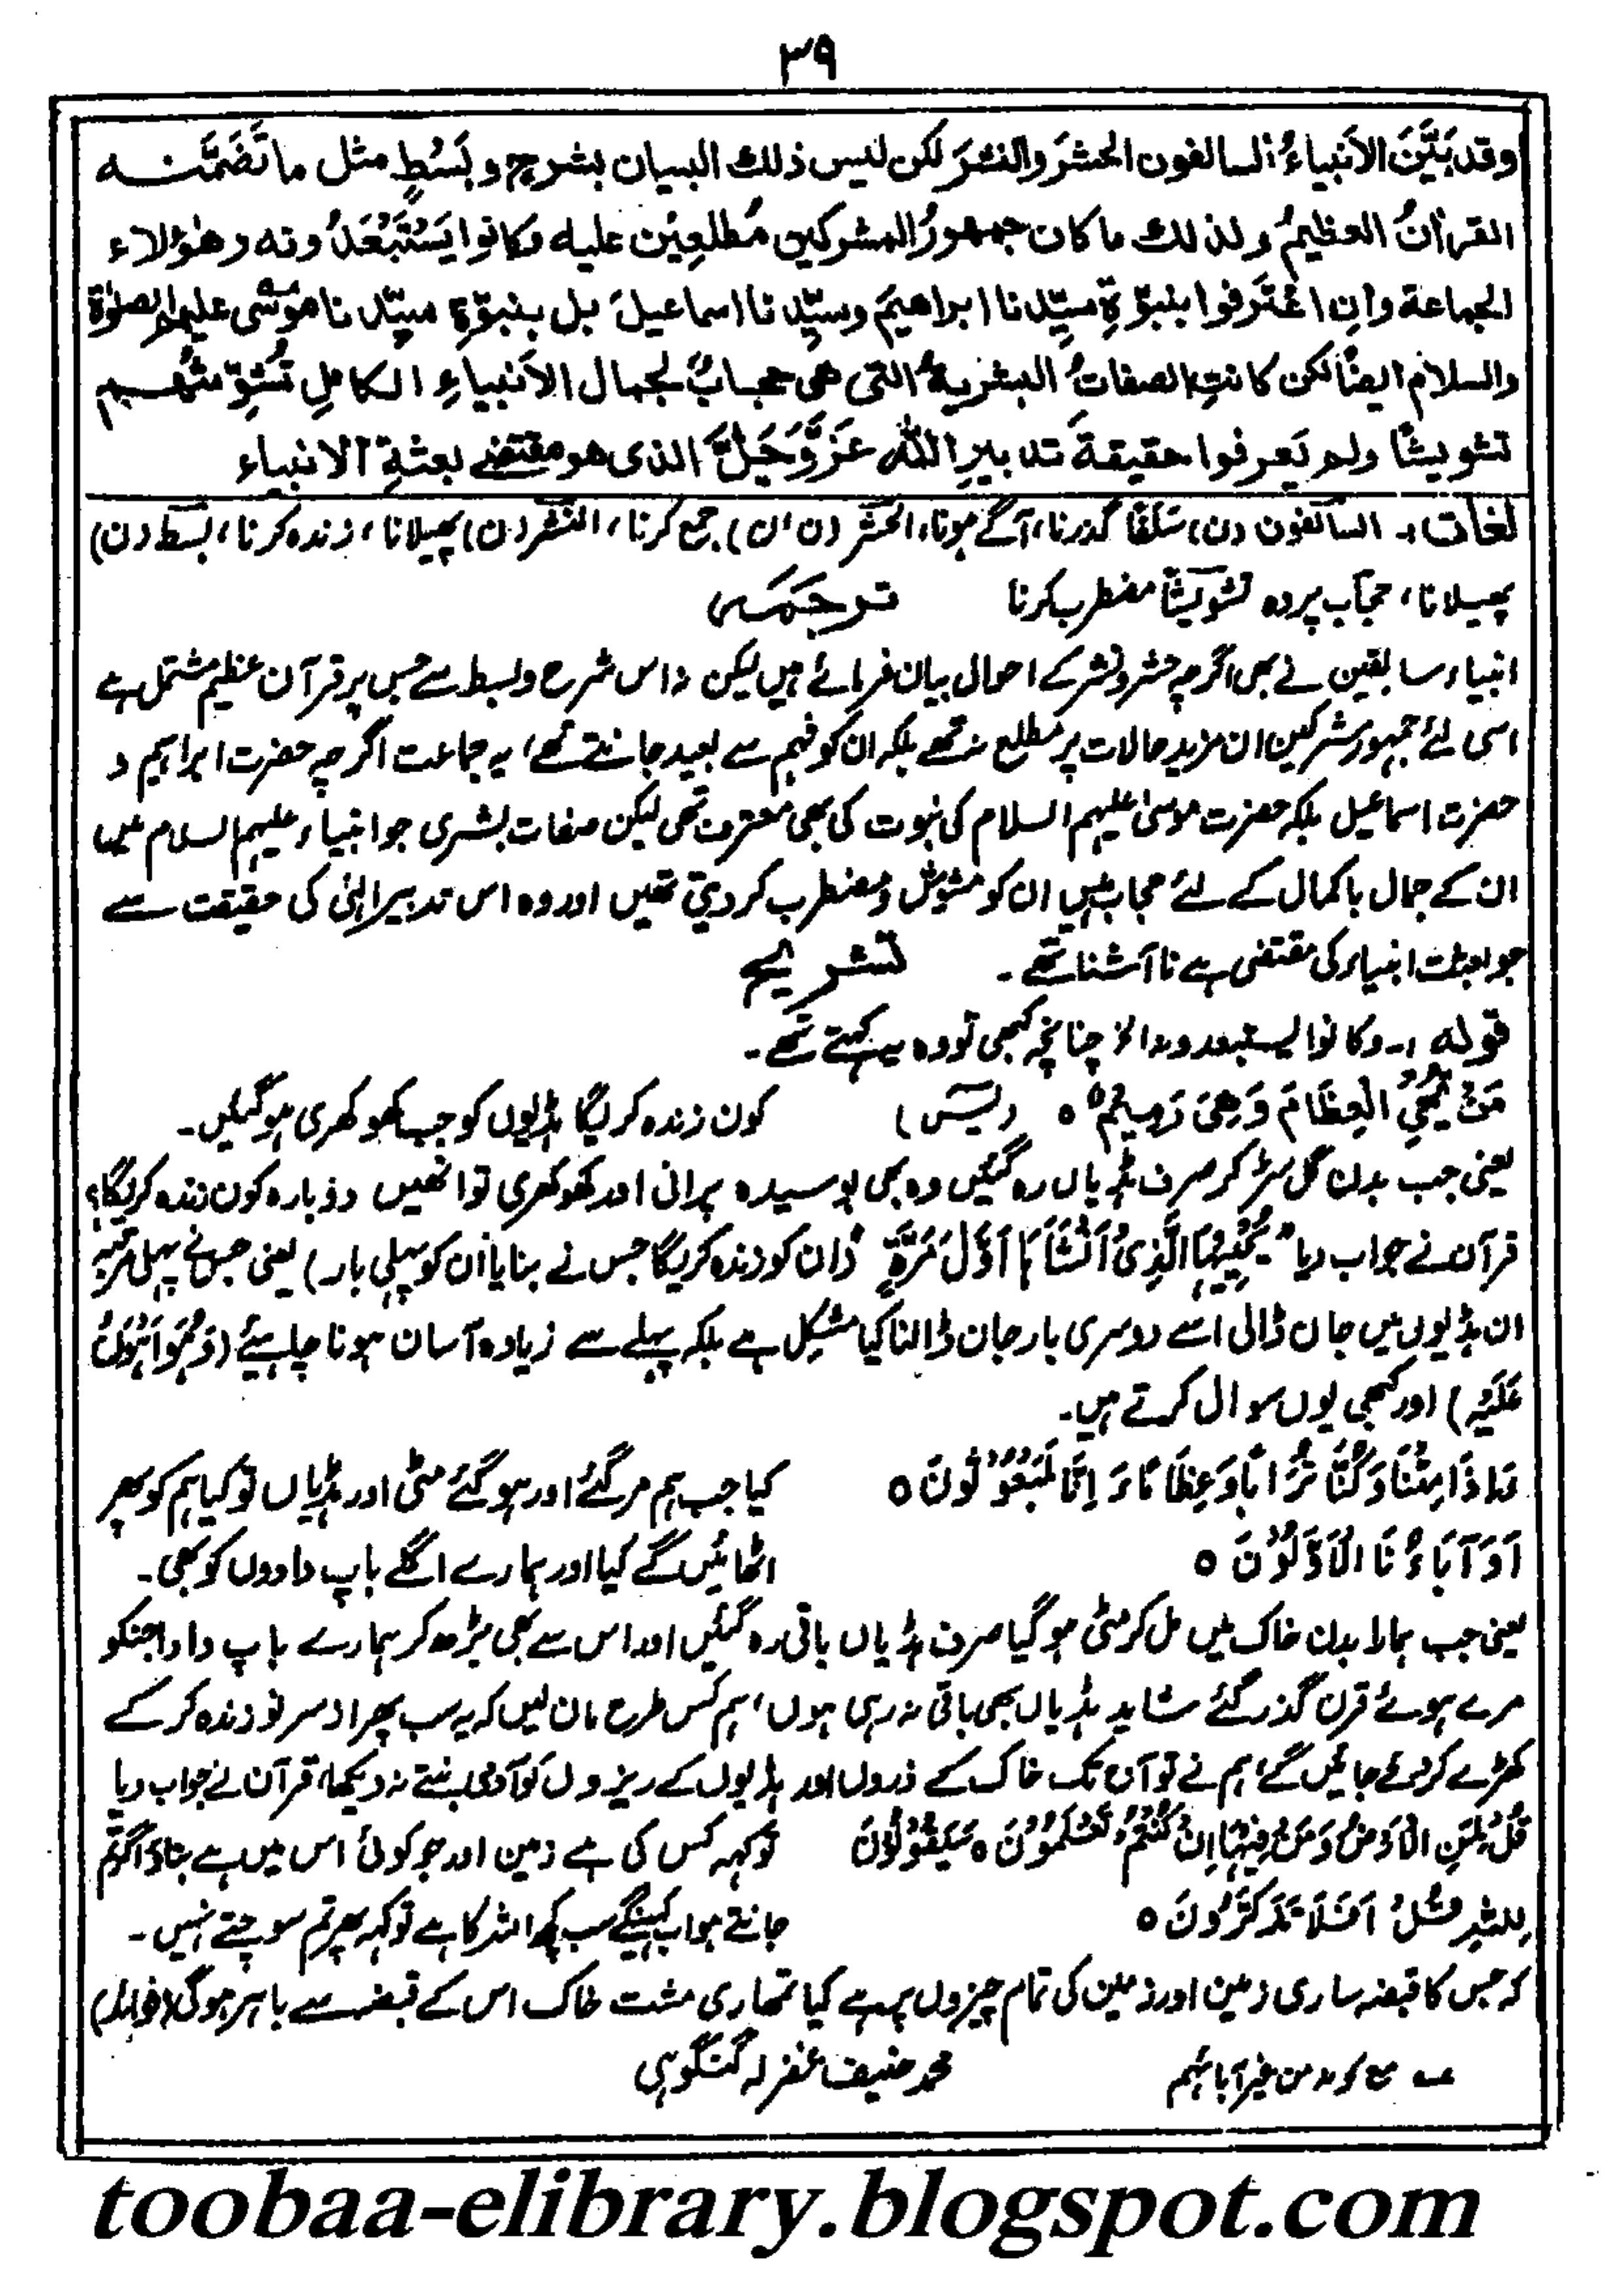 ٣٩
وقد بَيَّنَ الاَنبياءُ السالفون الحشرَ والنشرَ لكن ليس ذلك البيان بشرح وبَسْطٍ مثل ما تَضَمَّنـــه
القراٰنُ العظيمُ ولذلك ما كان جمهورُ المشركين مُطلعِيْن عليه وكانوا يَسْتَبْعَدُونه وهٰؤلاء
الجماعة وانِ اعْتَرفوا بنبوّةِ سيّدِنا ابراهيمَ وسيّدِنا اسماعيلَ بل بنبوّةِ سيّدِنا موسٰى عليهم الصلوٰة
والسلام ايضًا لكن كانتِ الصفاتُ البشريةُ التى هى حجابٌ لجمال الاَنبياءِ الكاملِ تُشَوِّشُهــم
تشويشًا ولم يَعرفوا حقيقةَ تدبيرِ اللّٰه عَزَّوَجَلَّ الذى هو مقتضٰے بعثةِ الانبياء
لغات :۔ السالفون (ن) سَلَفًا گذرنا، آگے ہونا، الحشر (ن، ض) جمع کرنا، النشر (ن) پھیلانا، زندہ کرنا، بسط (ن)
پھیلانا، حجاب پردہ تشویشاً مضطرب کرنا ترجمہ
انبیاء سابقین نے بھی اگرچہ حشر و نشر کے احوال بیان فرمائے ہیں لیکن نہ اس شرح و بسط سے جس پر قرآن عظیم مشتمل ہے
اسی لئے جمہور مشرکین ان مزید حالات پر مطلع نہ تھے بلکہ ان کو فہم سے بعید جانتے تھے، یہ جماعت اگرچہ حضرت ابراہیم و
حضرت اسماعیل بلکہ حضرت موسیٰ علیہم السلام کی نبوت کی بھی معترف تھی لیکن صفات بشری جو انبیاء علیہم السلام میں
ان کے جمال باکمال کے لئے حجاب ہیں ان کو مشوش و مضطرب کر دیتی تھیں اور وہ اس تدبیر الٰہی کی حقیقت سے
جو بعثت انبیاء کی مقتضی ہے ناآشنا تھے۔ تشریح
قولہ :۔ وکانوا یستبعدونہ الخ چنانچہ کبھی تو وہ یہ کہتے تھے۔
مَنْ یُّحْیِ الْعِظَامَ وَھِیَ رَمِیْمٌ ٥ (یٰسٓ) کون زندہ کریگا ہڈیوں کو جب کھوکھری ہو گئیں۔
یعنی جب بدن گل سڑ کر صرف ہڈیاں رہ گئیں وہ بھی بوسیدہ پرانی اور کھوکھری تو انھیں دوبارہ کون زندہ کریگا؟
قرآن نے جواب دیا "یُحْیِیْہَا الَّذِیْ اَنْشَاَہَا اَوَّلَ مَرَّۃٍ" (ان کو زندہ کریگا جس نے بنایا ان کو پہلی بار) یعنی جس نے پہلی مرتبہ
ان ہڈیوں میں جان ڈالی اسے دوسری بار جان ڈالنا کیا مشکل ہے بلکہ پہلے سے زیادہ آسان ہونا چاہیئے (وَھُوَ اَھْوَنُ
عَلَیْہِ) اور کبھی یوں سوال کرتے ہیں۔
ءَاِذَا مِتْنَا وَکُنَّا تُرَابًا وَعِظَامًا ءَ اِنَّا لَمَبْعُوْثُوْنَ ٥ کیا جب ہم مر گئے اور ہو گئے مٹی اور ہڈیاں تو کیا ہم کو پھر
اَوَ آبَاؤُنَا الْاَوَّلُوْنَ ٥ اٹھائیں گے کیا اور ہمارے اگلے باپ دادوں کو بھی۔
یعنی جب ہمارا بدن خاک میں مل کر مٹی ہو گیا صرف ہڈیاں باقی رہ گئیں اور اس سے بھی بڑھ کر ہمارے باپ دادا جنکو
مرے ہوئے قرن گذر گئے شاید ہڈیاں بھی باقی نہ رہی ہوں، ہم کس طرح مان لیں کہ یہ سب پھر از سر نو زندہ کر کے
کھڑے کر دئے جائیں گے، ہم نے تو آن تک خاک کے ذروں اور ہڈیوں کے ریزوں کو آدمی بنتے نہ دیکھا، قرآن نے جواب دیا
قُلْ لِمَنِ الْاَرْضُ وَمَنْ فِیْہَا اِنْ کُنْتُمْ تَعْلَمُوْنَ ٥ سَیَقُوْلُوْنَ تو کہہ کس کی ہے زمین اور جو کوئی اس میں ہے بتاؤ اگر تم
لِلّٰہِ قُلْ اَفَلَا تَذَکَّرُوْنَ ٥ جانتے ہو اب کہینگے سب کچھ اللہ کا ہے تو کہہ پھر تم سوچتے نہیں۔
کہ جس کا قبضہ ساری زمین اور زمین کی تمام چیزوں پر ہے کیا تمہاری مشت خاک اس کے قبضہ سے باہر ہوگی (فوائد)
من غیر آبائہم محمد حنیف غفرلہ گنگوہی
toobaa-elibrary.blogspot.com